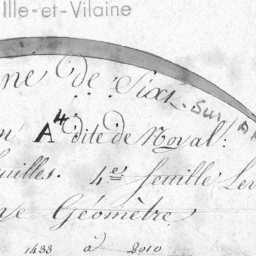 Ille-et-Vilaine
ne de Sixt-Sur-A
on A 4 dite de Noyal:
euilles. 4es feuille Lev
ve Géomètre
1433 à 2010